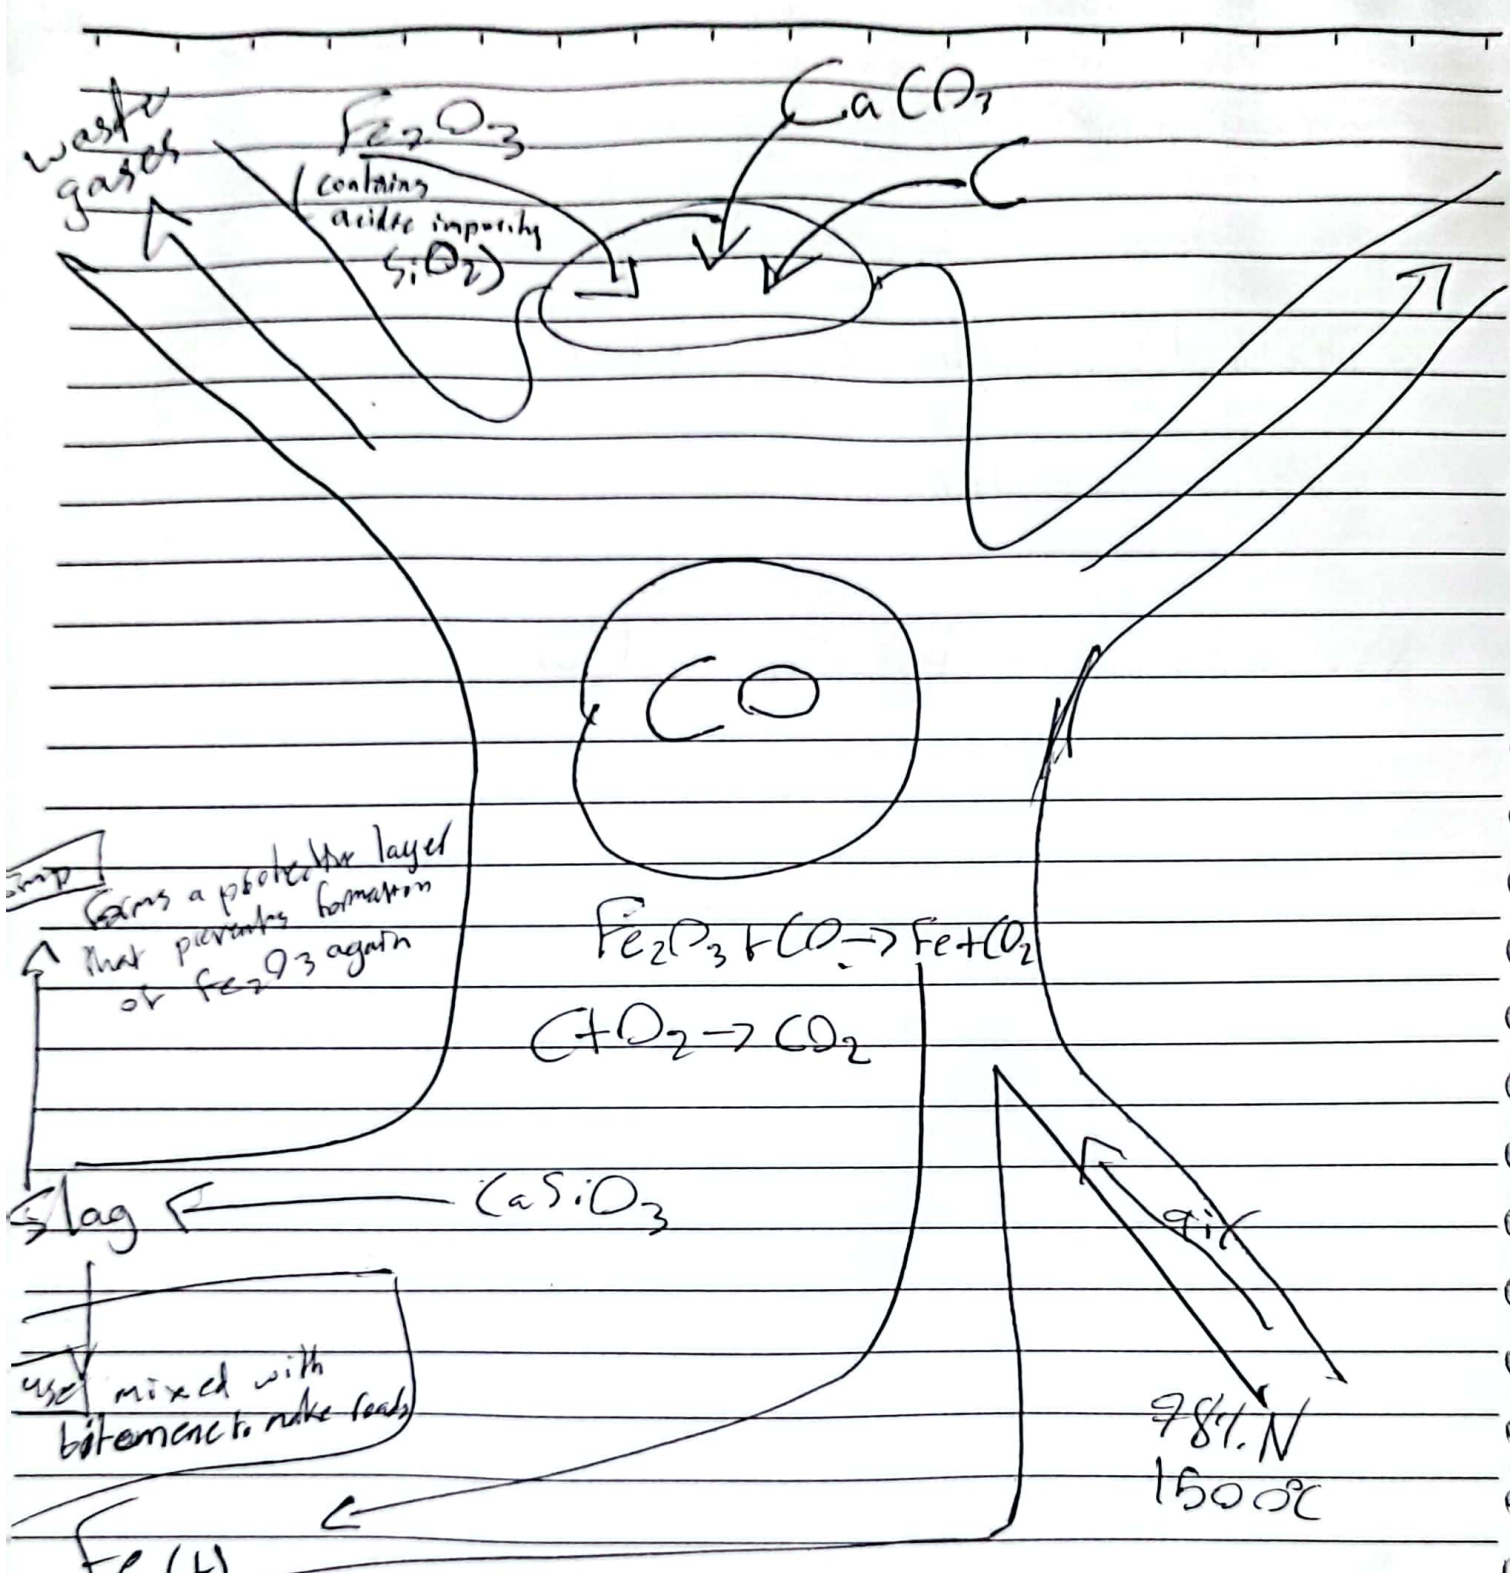 waste
gases
Fe₂O₃
(contains
acidic impurity
SiO₂)
CaCO₃
C
CO
forms a protective layer
that prevents formation
of Fe₂O₃ again
Fe₂O₃ + CO → Fe + CO₂
C + O₂ → CO₂
Slag ← CaSiO₃
air
use mixed with
bitemene to make roads
78% N
1500°C
Fe (l)